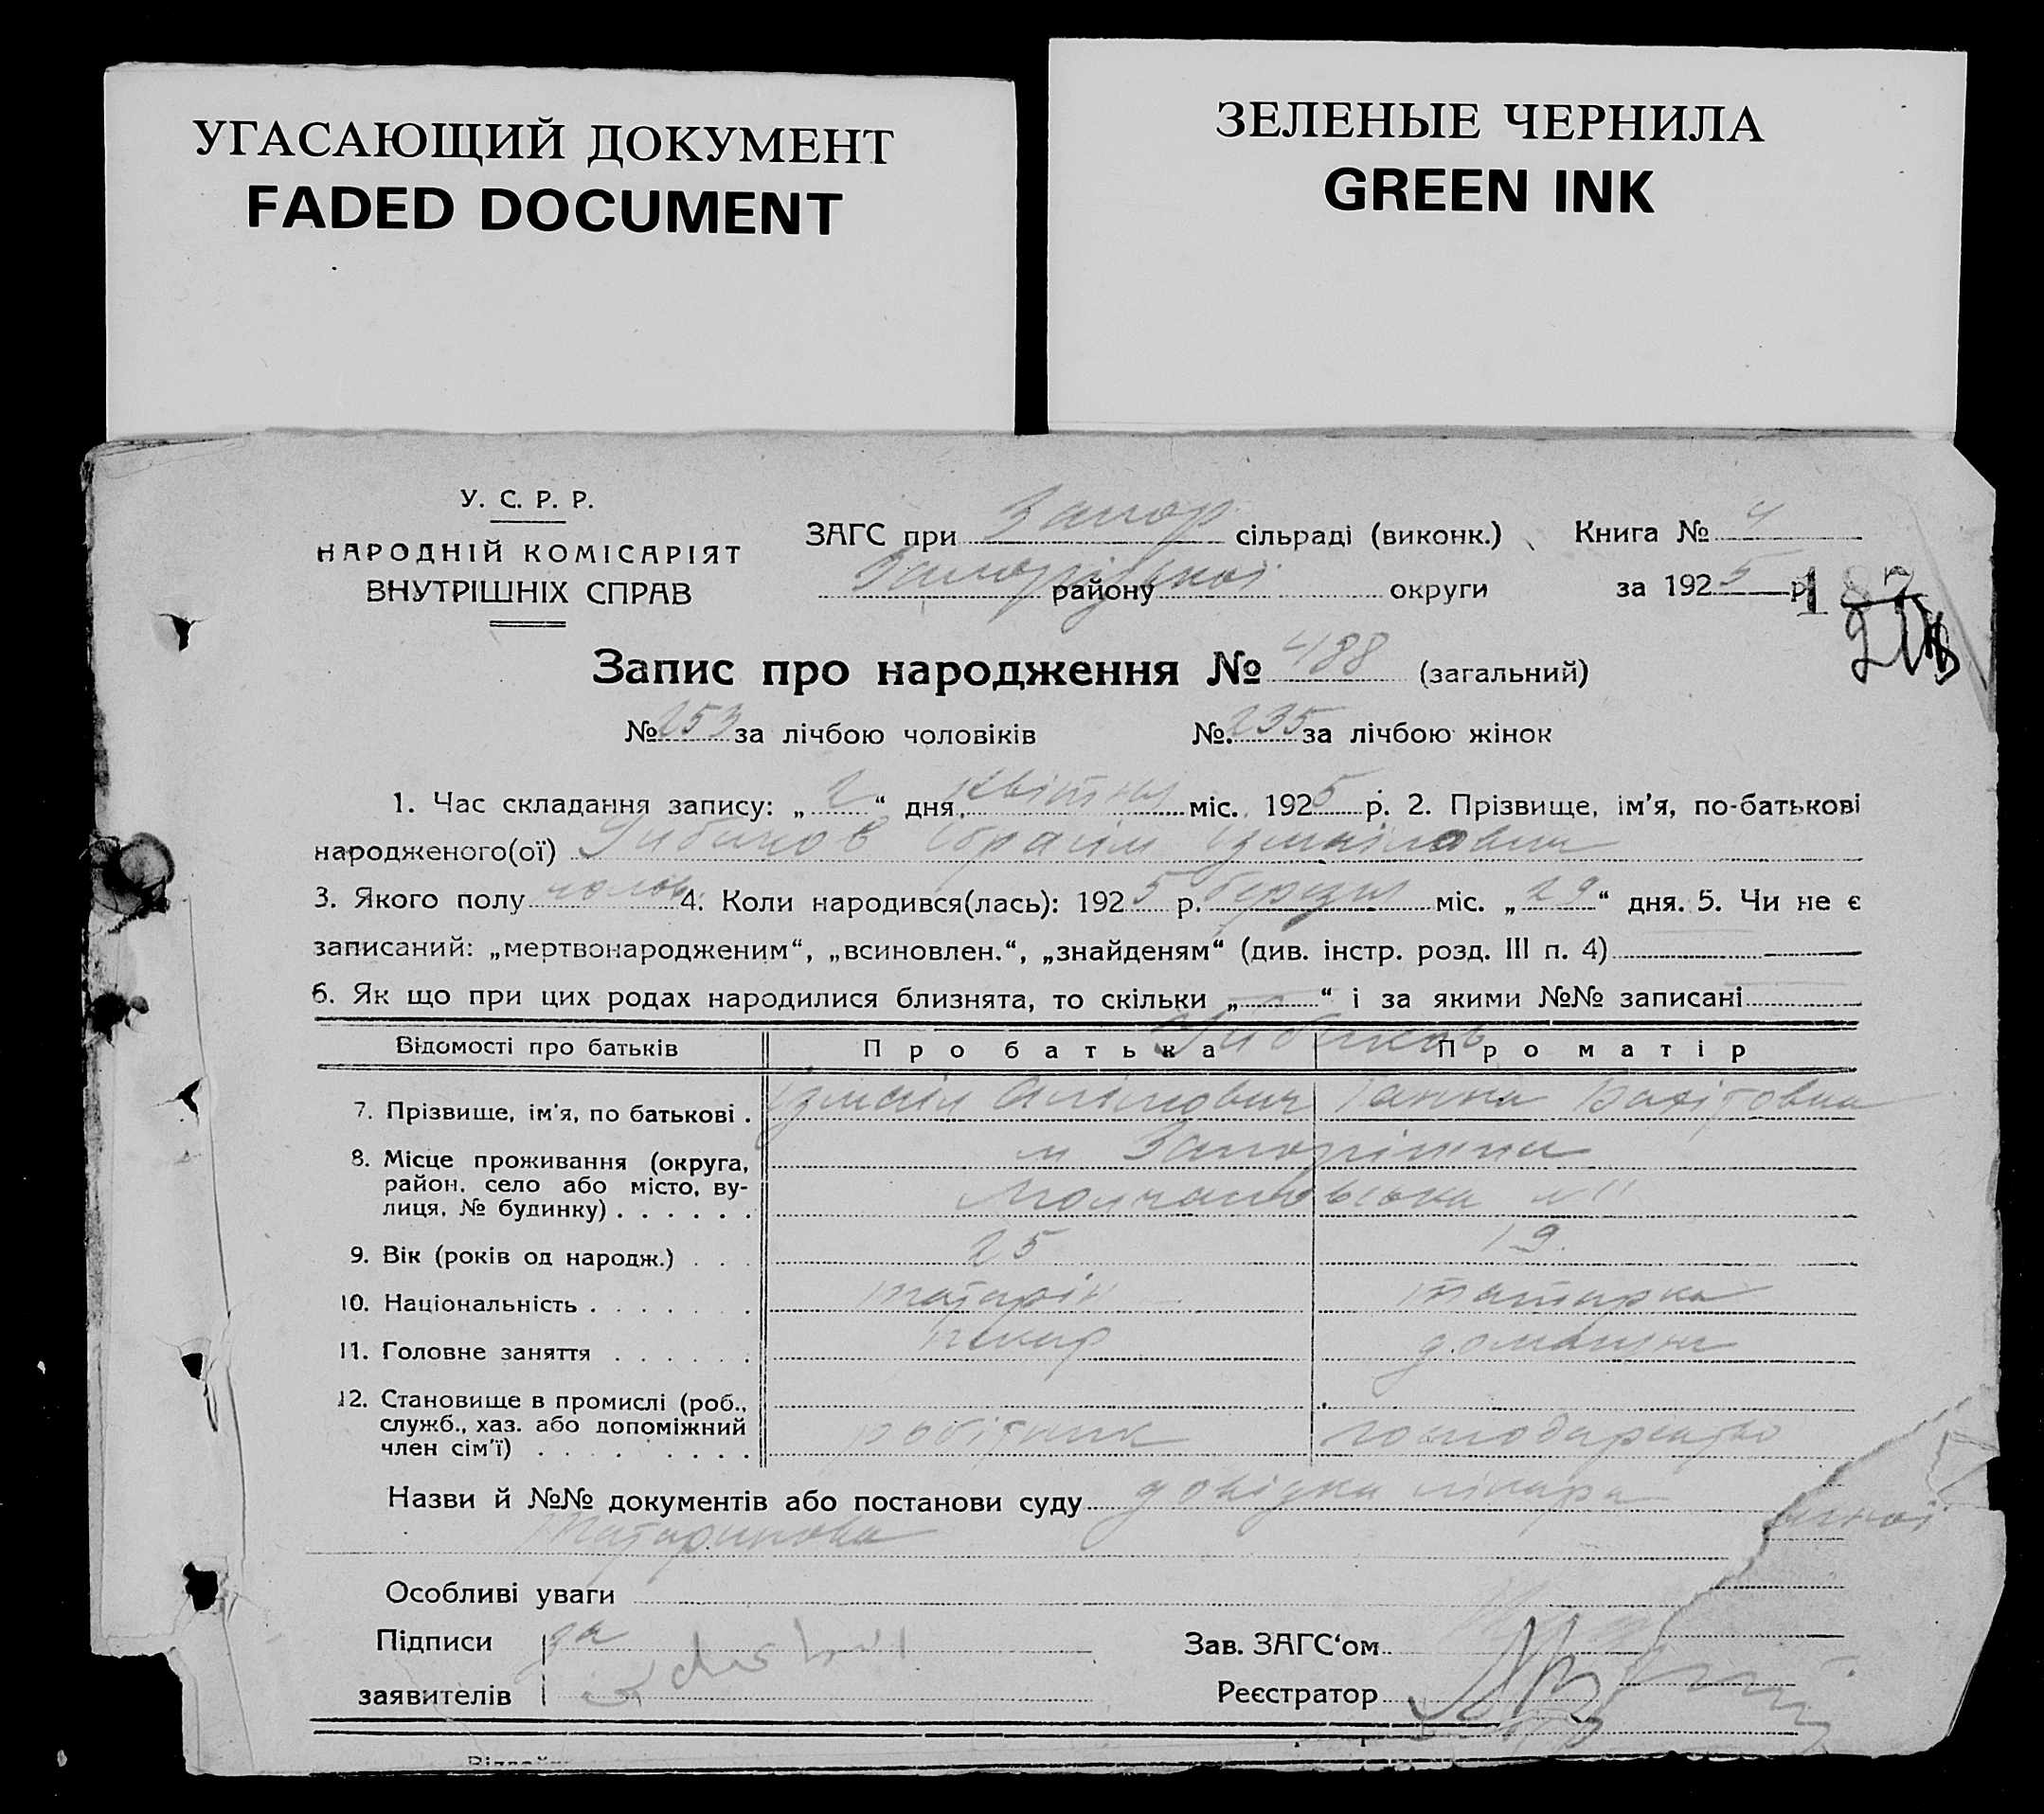 УГАСАЮЩИЙ ДОКУМЕНТ
FADED DOCUMENT
ЗЕЛЕНЫЕ ЧЕРНИЛА
GREEN INK
У. С. Р. Р.
НАРОДНІЙ КОМІСАРІЯТ
ВНУТРІШНІХ СПРАВ
ЗАГС при Запор сільраді (виконк.)
району округи
Книга № 4
за 1925 р.
187
Запис про народження № 488 (загальний)
№ 253 за лічбою чоловіків № 235 за лічбою жінок
1. Час складання запису: „2“ дня квітня міс. 1925 р. 2. Прізвище, ім'я, по-батькові
народженого(ої) Ібраїм Ізмаілович
3. Якого полу чолов. 4. Коли народився(лась): 1925 р. березня міс. „29“ дня. 5. Чи не є
записаний: „мертвонародженим“, „всиновлен.“, „знайденям“ (див. інстр. розд. III п. 4)
6. Як що при цих родах народилися близнята, то скільки „ “ і за якими №№ записані
Відомості про батьків Про батька Про матір
7. Прізвище, ім'я, по батькові . Ізмаіл Алімович Ганна
8. Місце проживання (округа, м Запоріжжя
район, село або місто, ву-
лиця, № будинку) . . . . . . №11
9. Вік (років од народж.) . . . 25 19
10. Національність . . . . . . . татарін татарка
11. Головне заняття . . . . . . пекар домашнє
12. Становище в промислі (роб.,
служб., хаз. або допоміжний
член сім'ї) . . . . . . . . робітник господарство
Назви й №№ документів або постанови суду довідка лікаря
Татаринова
Особливі уваги
Підписи за
заявителів
Зав. ЗАГС‘ом
Реєстратор